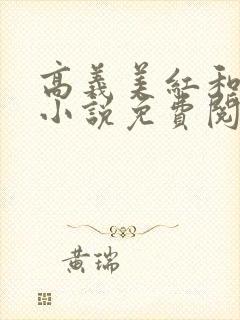 高義美紅和
小說免費閱
黃瑞